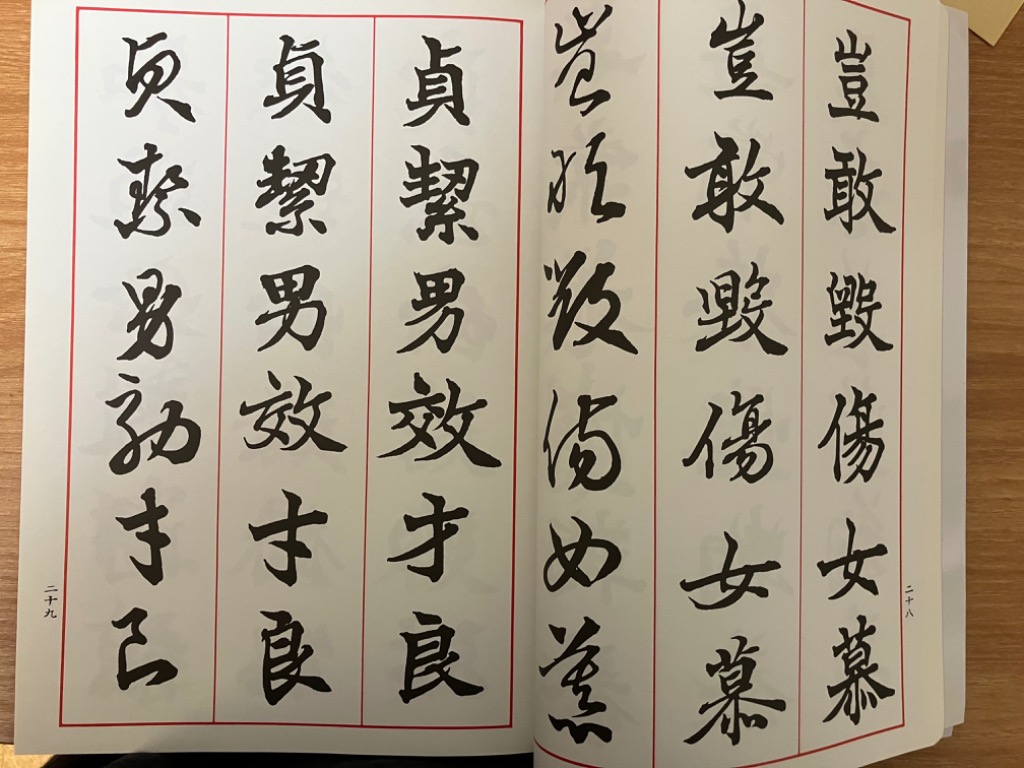 豈敢毀傷女慕
豈敢毀傷女慕
豈敢毀傷女慕
二十八
貞絜男效才良
貞絜男效才良
貞絜男效才良
二十九